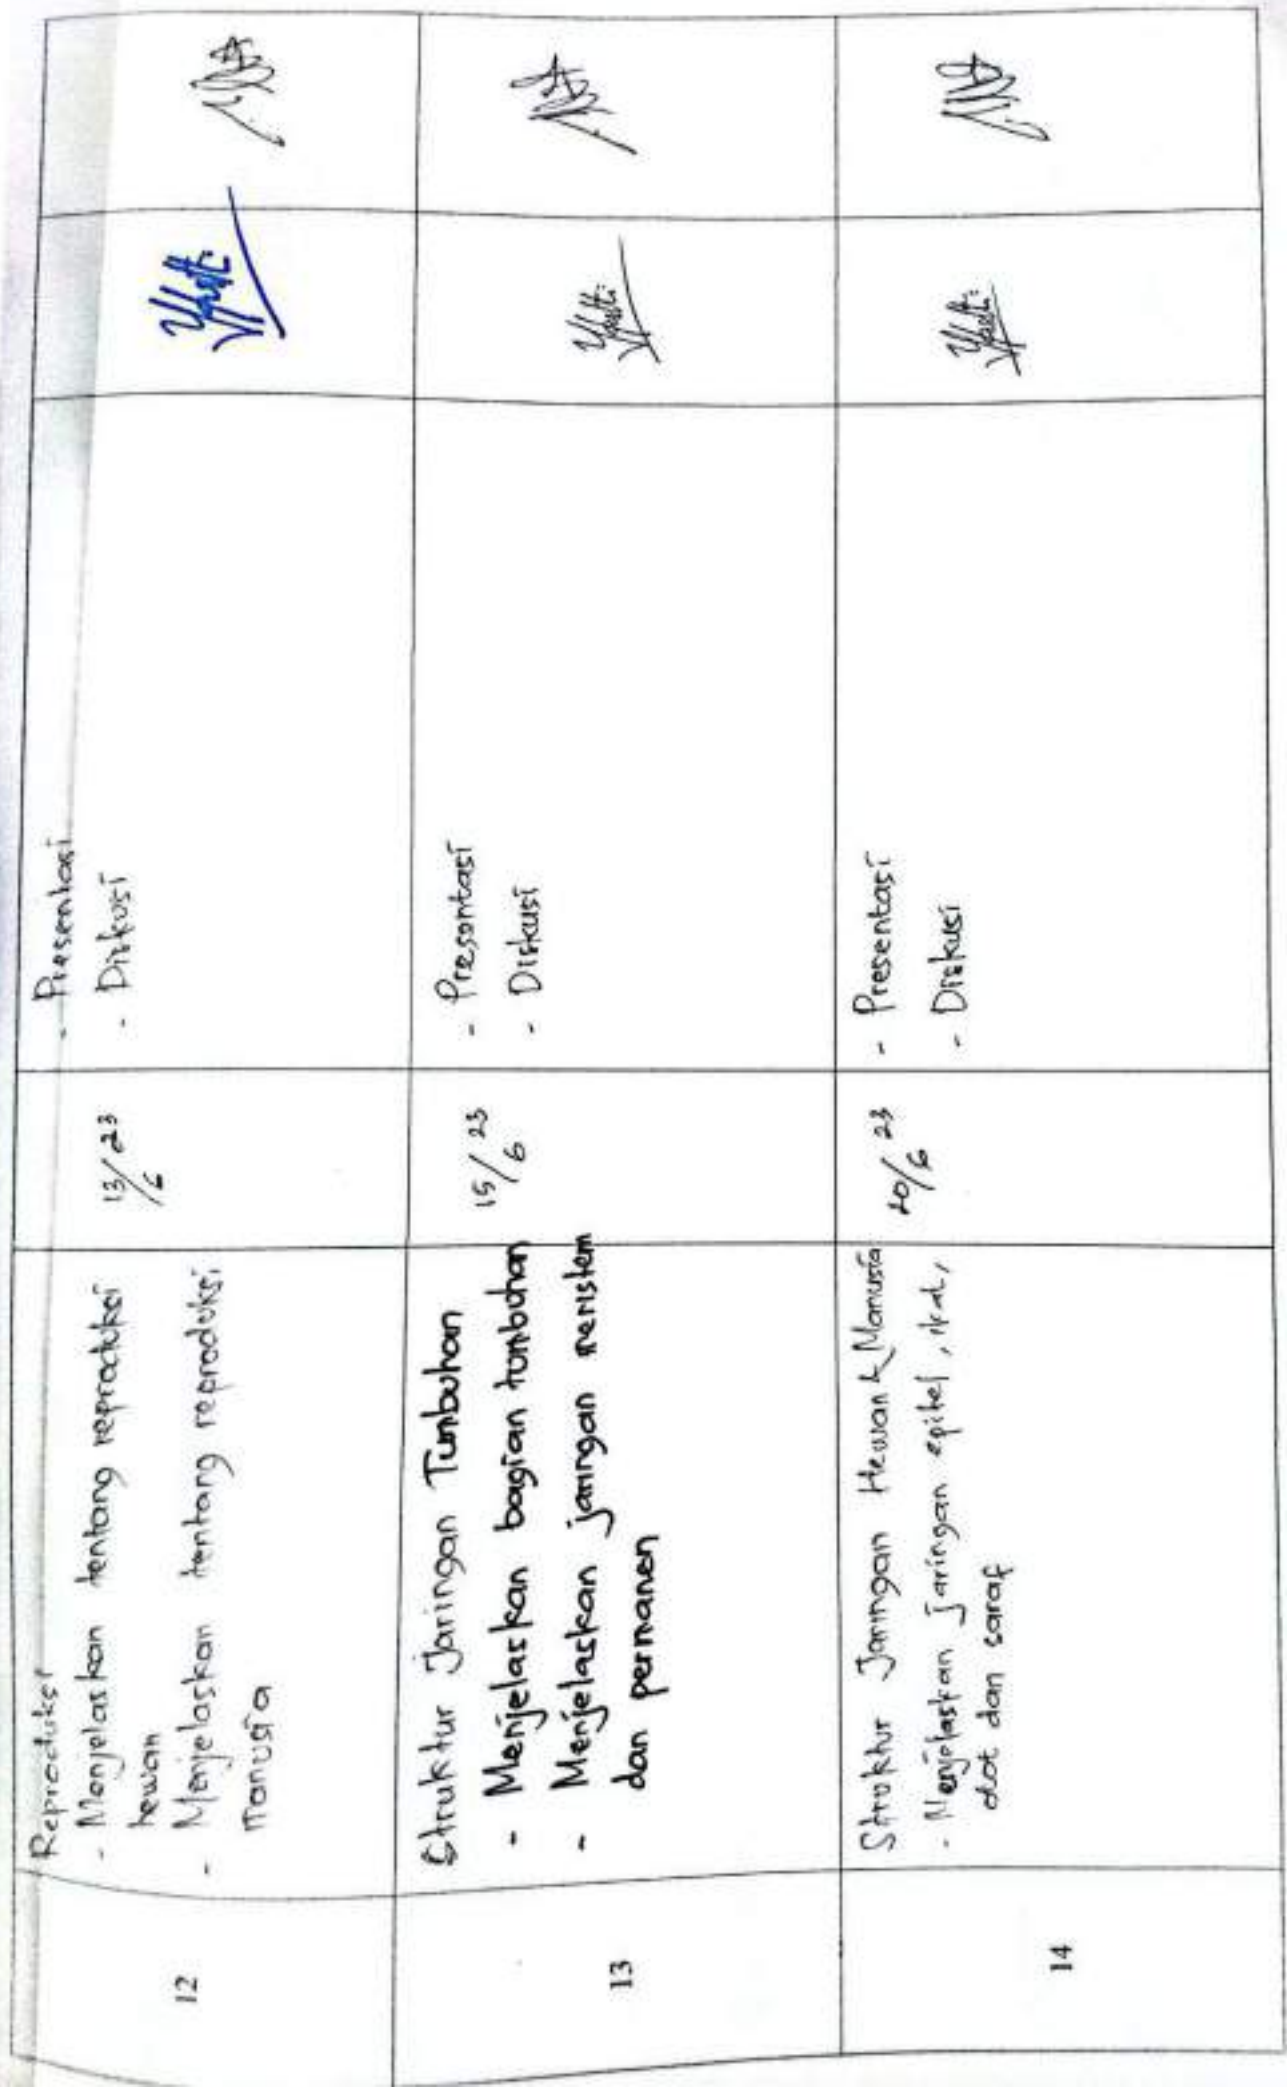 12
Reproduksi
- Menjelaskan tentang reproduksi
hewan
- Menjelaskan tentang reproduksi
manusia
13/6 23
- Presentasi
- Diskusi
13
Struktur Jaringan Tumbuhan
- Menjelaskan bagian tumbuhan
- Menjelaskan jaringan meristem
dan permanen
15/6 23
- Presentasi
- Diskusi
14
Struktur Jaringan Hewan & Manusia
- Menjelaskan jaringan epitel, ikat,
otot dan saraf
20/6 23
- Presentasi
- Diskusi